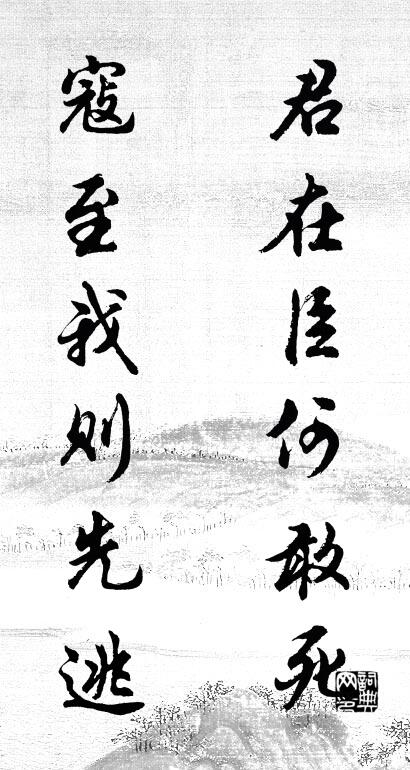 君在臣何敢死
寇至我则先逃
詞典网